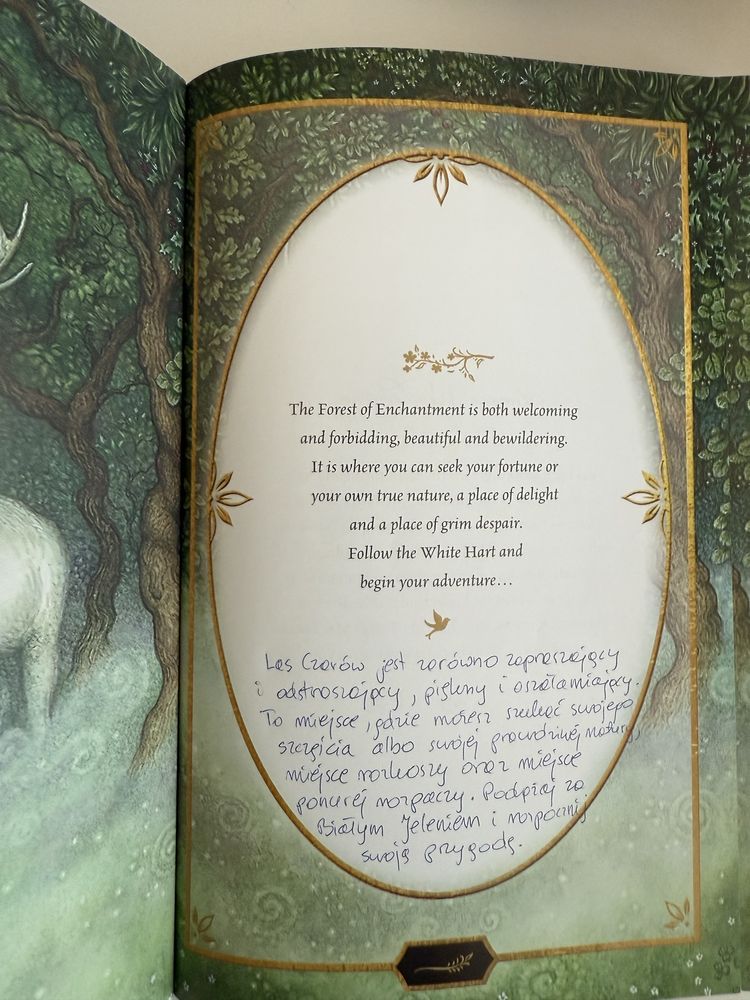 The Forest of Enchantment is both welcoming
and forbidding, beautiful and bewildering.
It is where you can seek your fortune or
your own true nature, a place of delight
and a place of grim despair.
Follow the White Hart and
begin your adventure...
Las Czarów jest zarówno zapraszający
i odstraszający, piękny i oszałamiający.
To miejsce, gdzie możesz szukać swojego
szczęścia albo swojej prawdziwej natury,
miejsce rozkoszy oraz miejsce
ponurej rozpaczy. Podążaj za
Białym Jeleniem i rozpocznij
swoją przygodę.